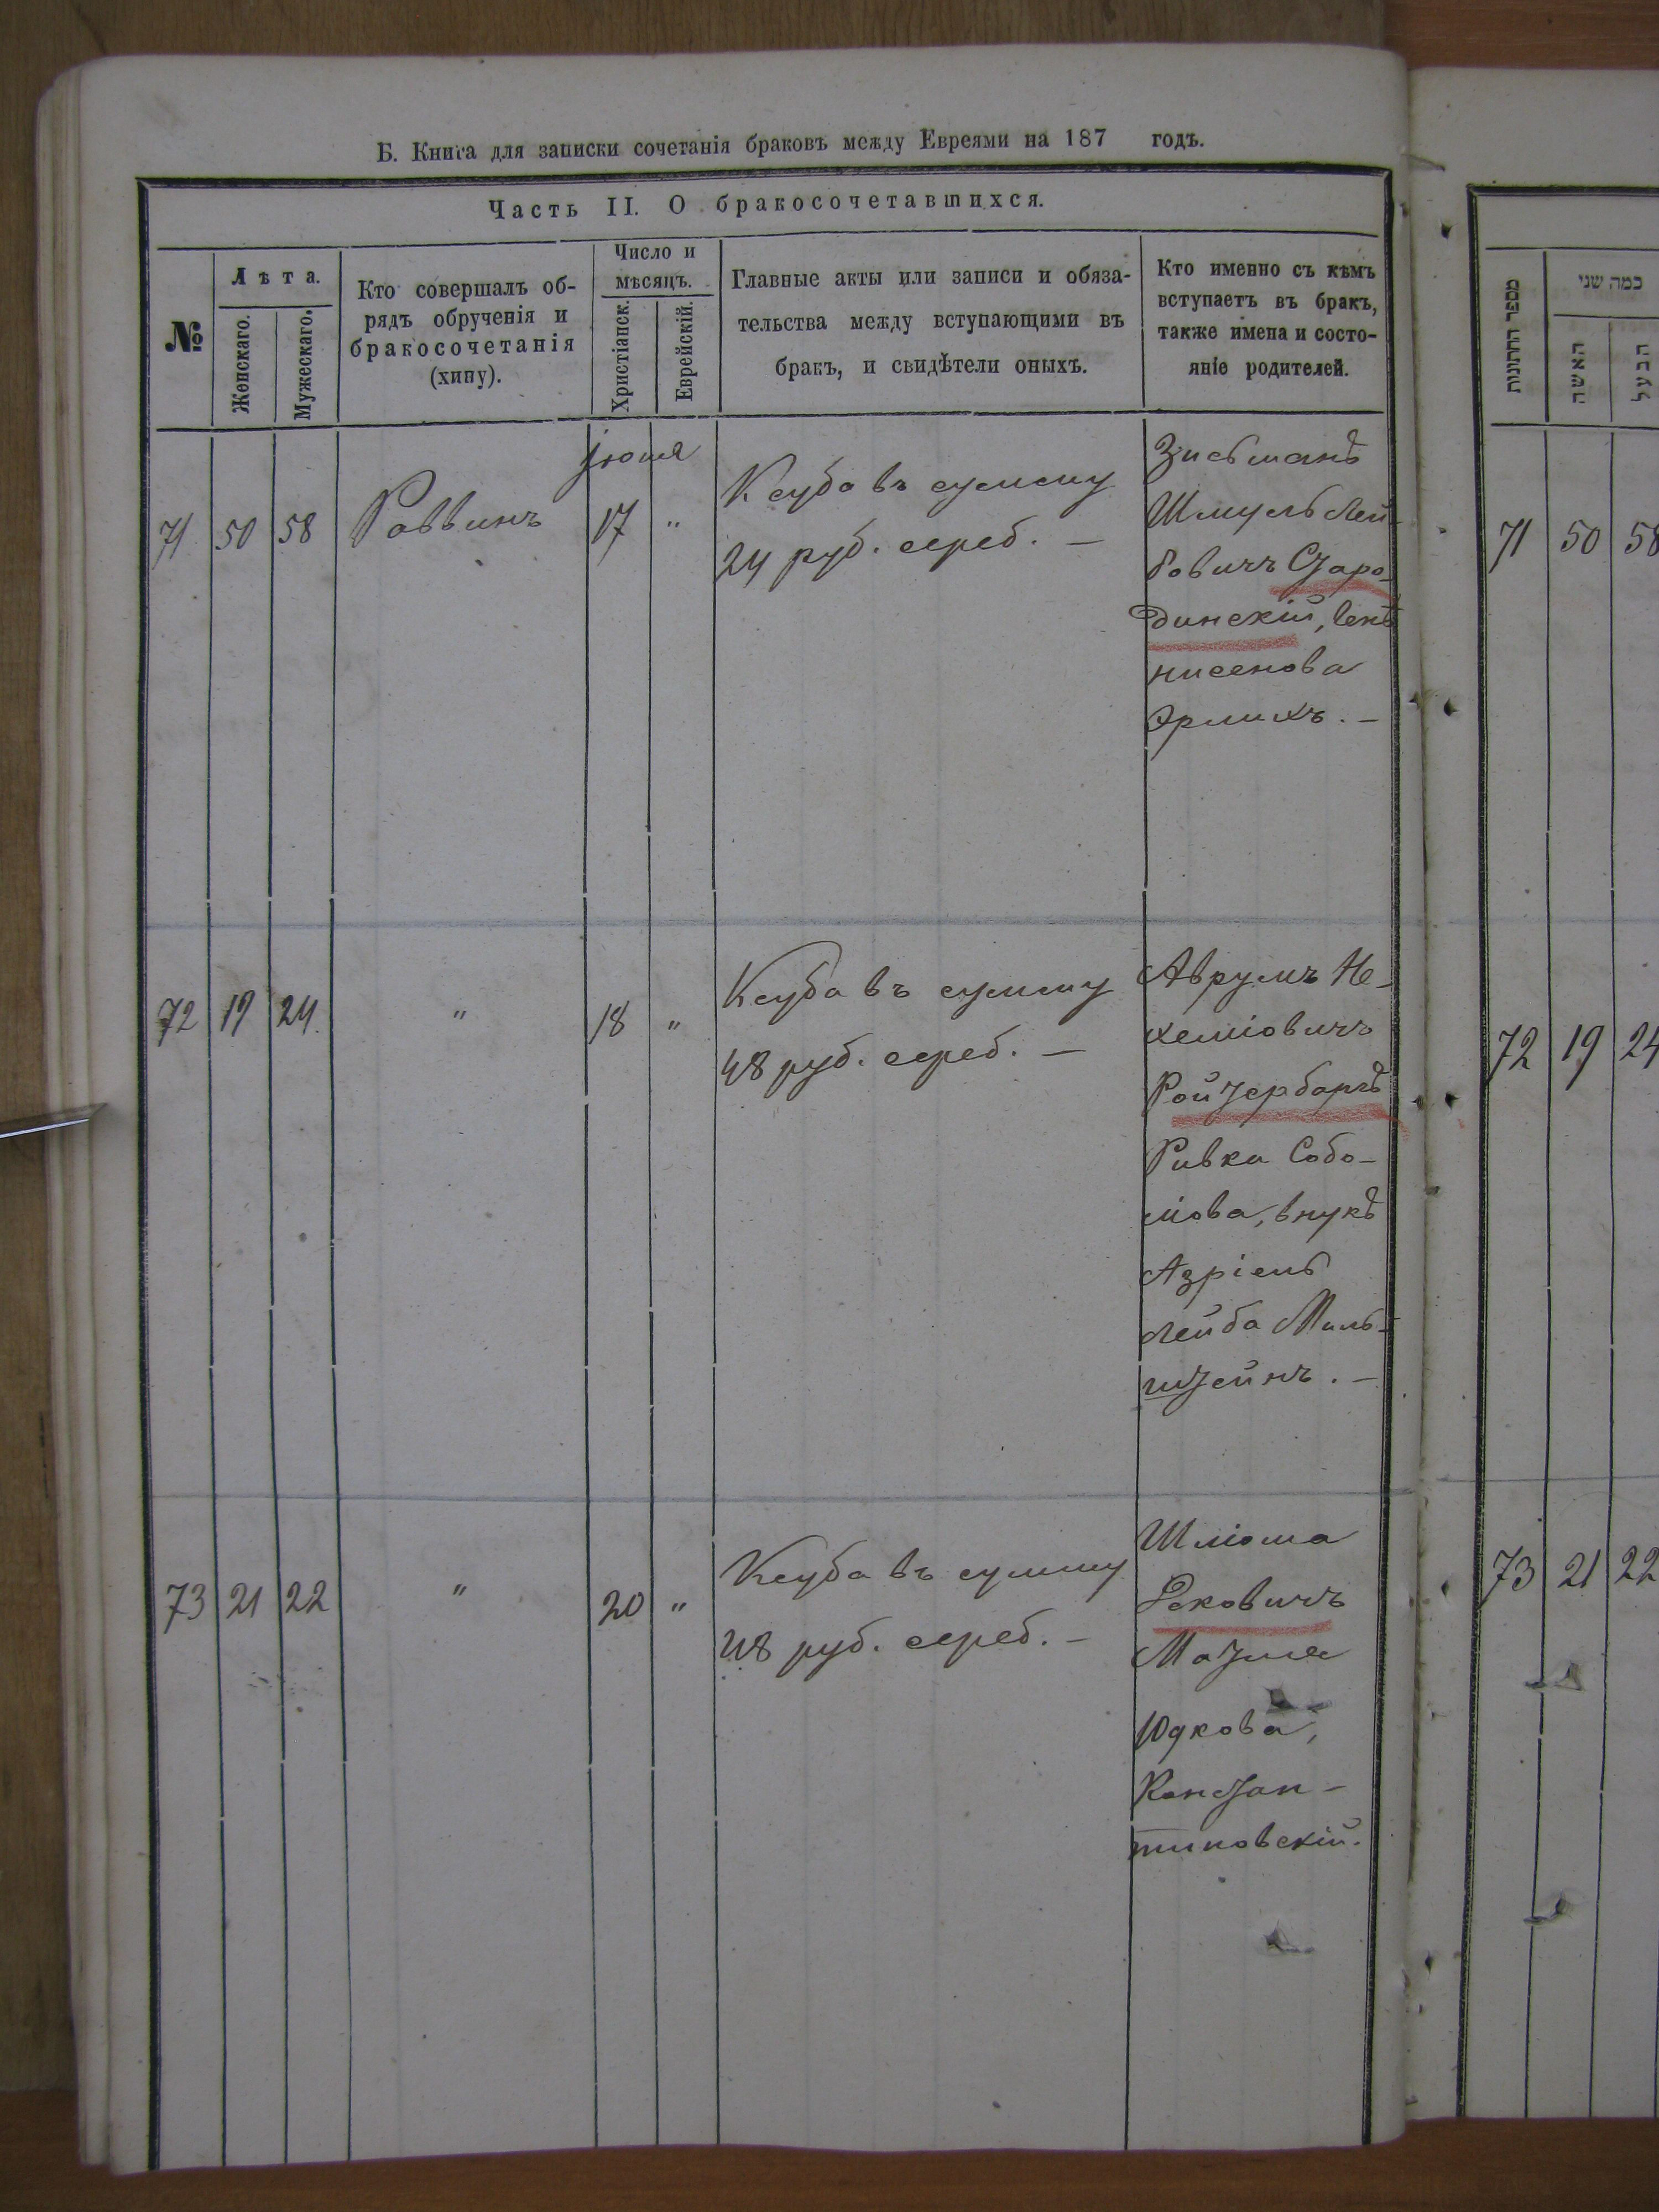 Б. Книга для записки сочетанія браковъ между Евреями на 187 годъ.
Часть II. О бракосочетавшихся.
№
Лѣта.
Женскаго.
Мужескаго.
Кто совершалъ об-
рядъ обрученія и
бракосочетанія
(хипу).
Число и
мѣсяцъ.
Христіанск.
Еврейскій.
Главные акты или записи и обяза-
тельства между вступающими въ
бракъ, и свидѣтели оныхъ.
Кто именно съ кѣмъ
вступаетъ въ бракъ,
также имена и состо-
яніе родителей.
מספר החתונות
כמה שני
האשה
הבעל
71 50 58 Раввинъ
Іюня
17 "
Ксуба въ сумму
24 руб. сереб. —
Зисьманъ
Шмуль Лей-
бовичъ Старо-
динскій,
нисенова
Эрлихъ. —
71 50 58
72 19 24. " 18 "
Ксуба въ сумму
48 руб. сереб. —
Аврумъ Не-
хеміовичъ
Ройтербаргъ
Ривка
внукъ
Азріель
Лейба Миль-
штейнъ. —
72 19 24
73 21 22 " 20 "
Ксуба въ сумму
48 руб. сереб. —
Шліома
Рековичъ
Матля
Юдкова,
Констан-
тиновскій.
73 21 22